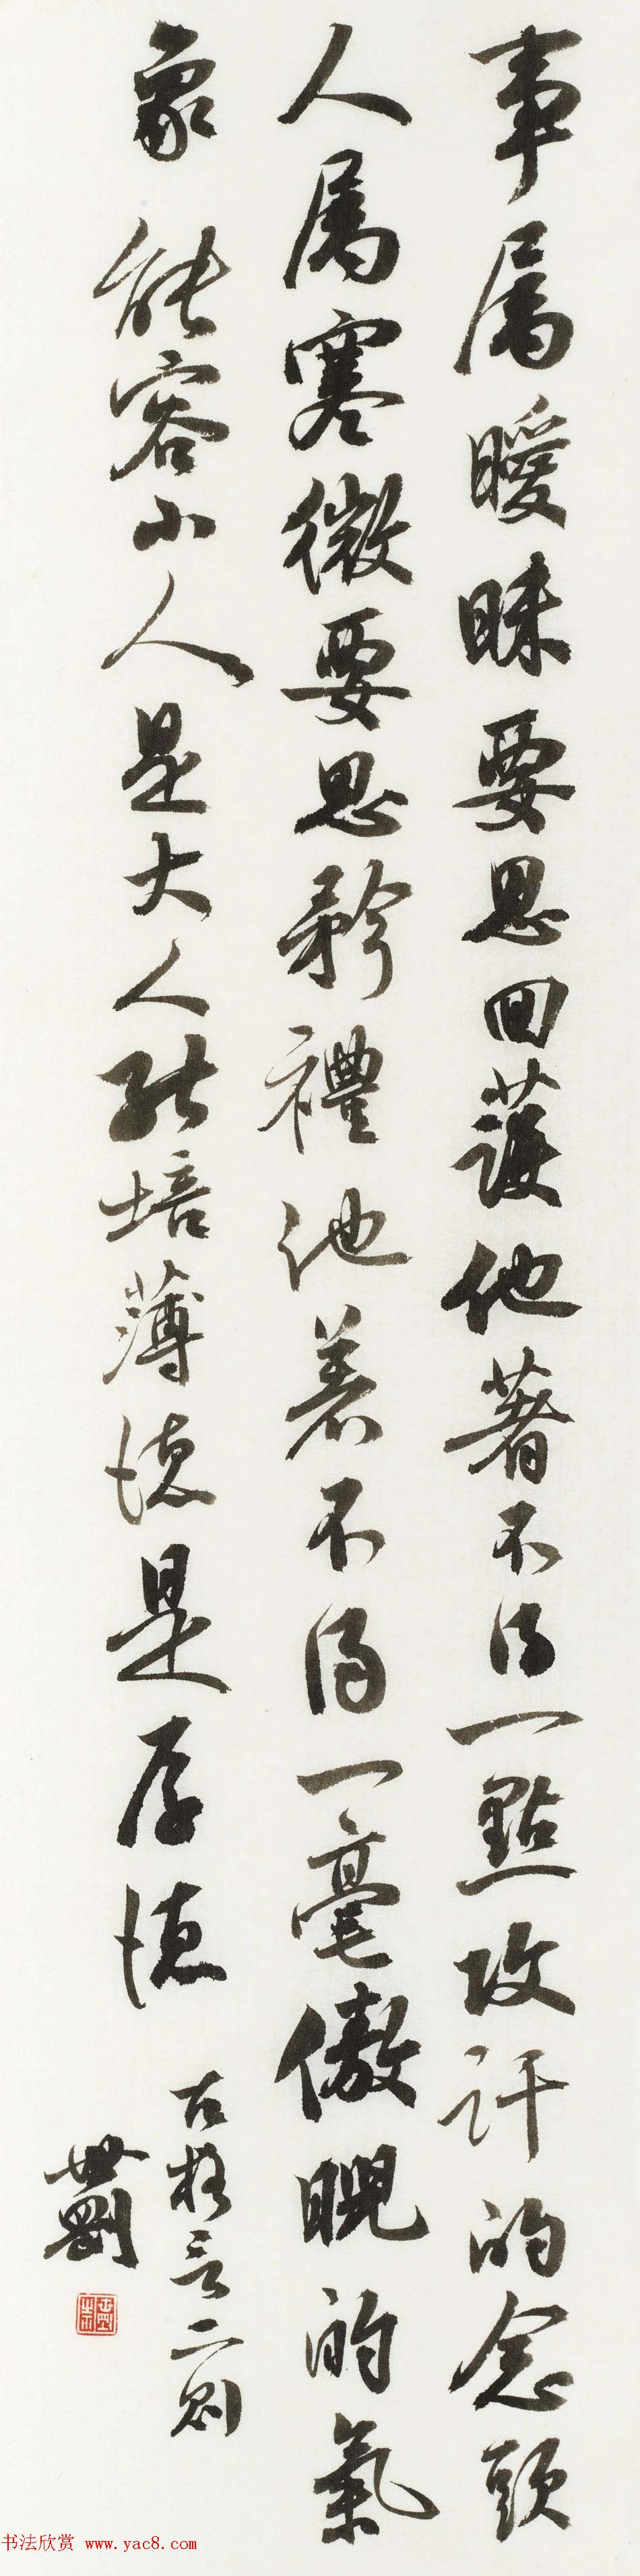 事属曖昧要思回護他著不得一點攻訐的念頭
人属寒微要思矜禮他着不得一毫傲睨的氣
象 能容小人是大人能培薄德是厚德
古格言二则
世劉
书法欣赏 www.yac8.com